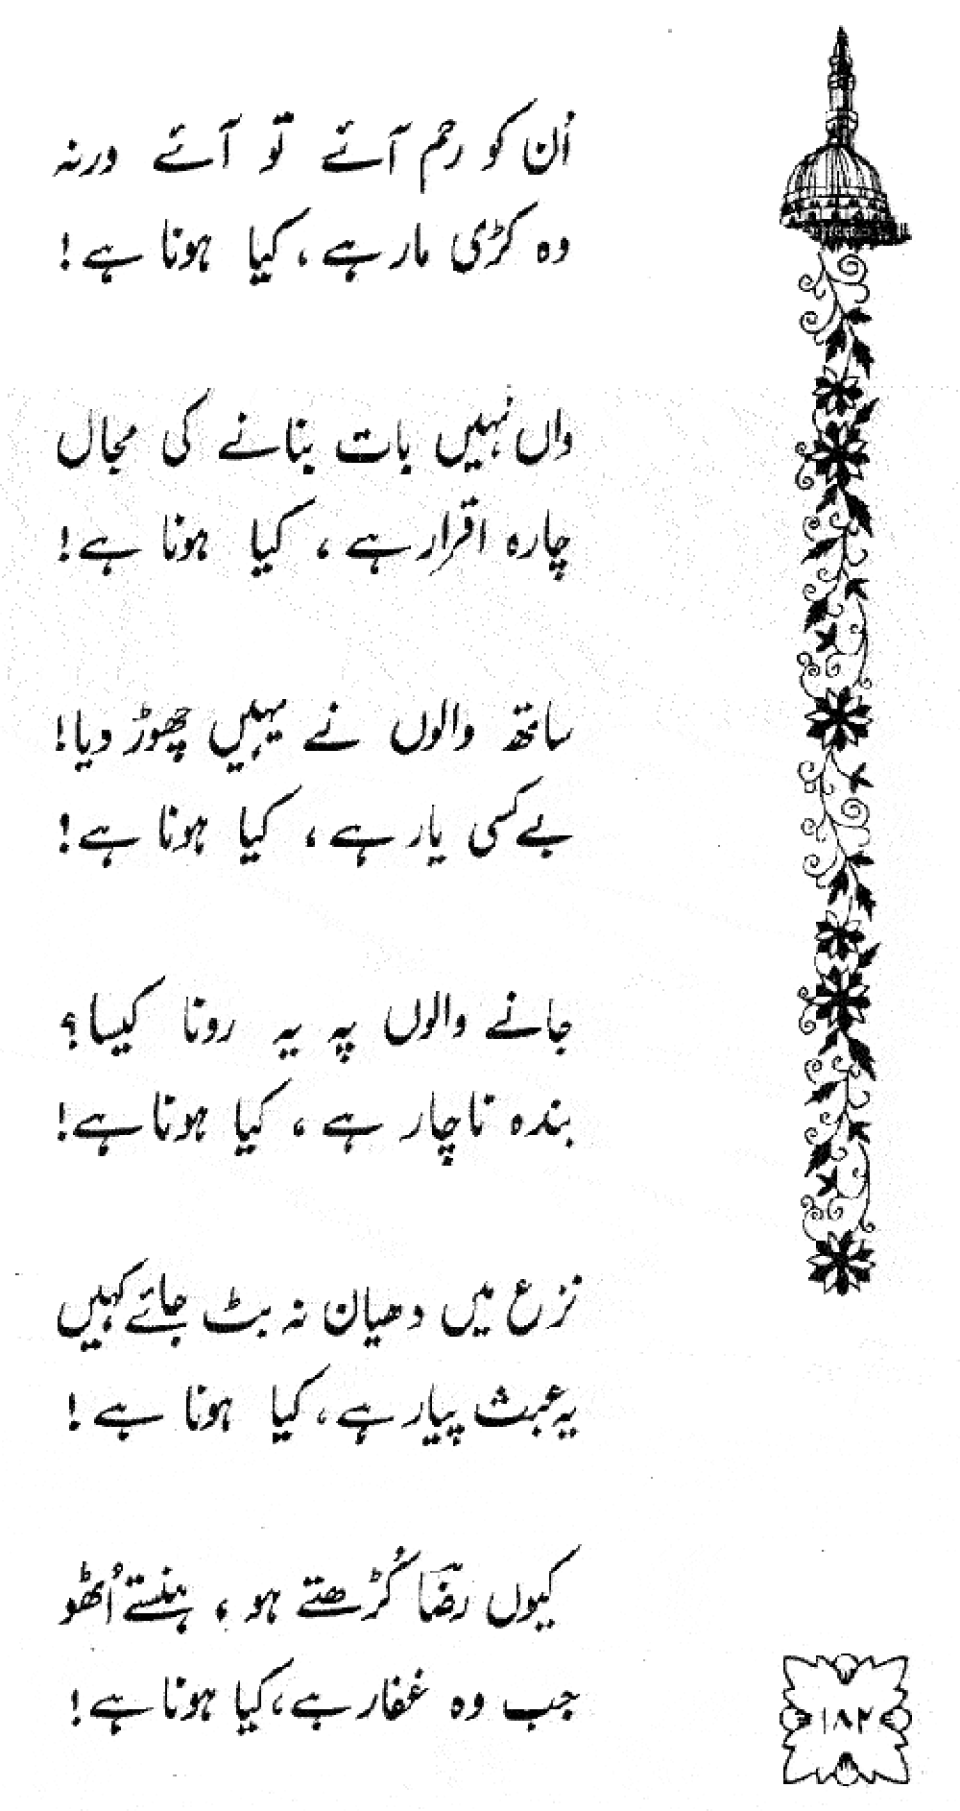 اُن کو رحم آئے تو آئے ورنہ
وہ کڑی مار ہے، کیا ہونا ہے!
واں نہیں بات بنانے کی مجال
چارہ اقرار ہے، کیا ہونا ہے!
ساتھ والوں نے یہیں چھوڑ دیا!
بے کسی یار ہے، کیا ہونا ہے!
جانے والوں پہ یہ رونا کیسا؟
بندہ ناچار ہے، کیا ہونا ہے!
نزع میں دھیان نہ بٹ جائے کہیں
یہ عبث پیار ہے، کیا ہونا ہے!
کیوں رضؔا کُڑھتے ہو، ہنستے اُٹھو
جب وہ غفار ہے، کیا ہونا ہے!
۱۸۲